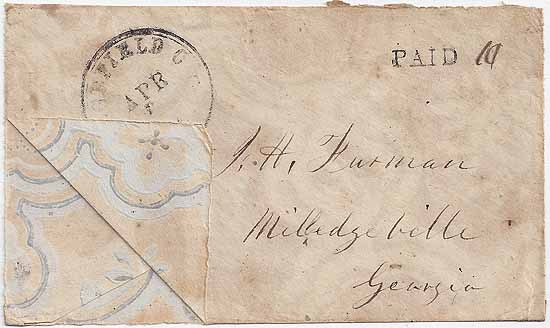 GEFIELD C
APR
PAID 10
J. H. Furman
Milledgeville
Georgia